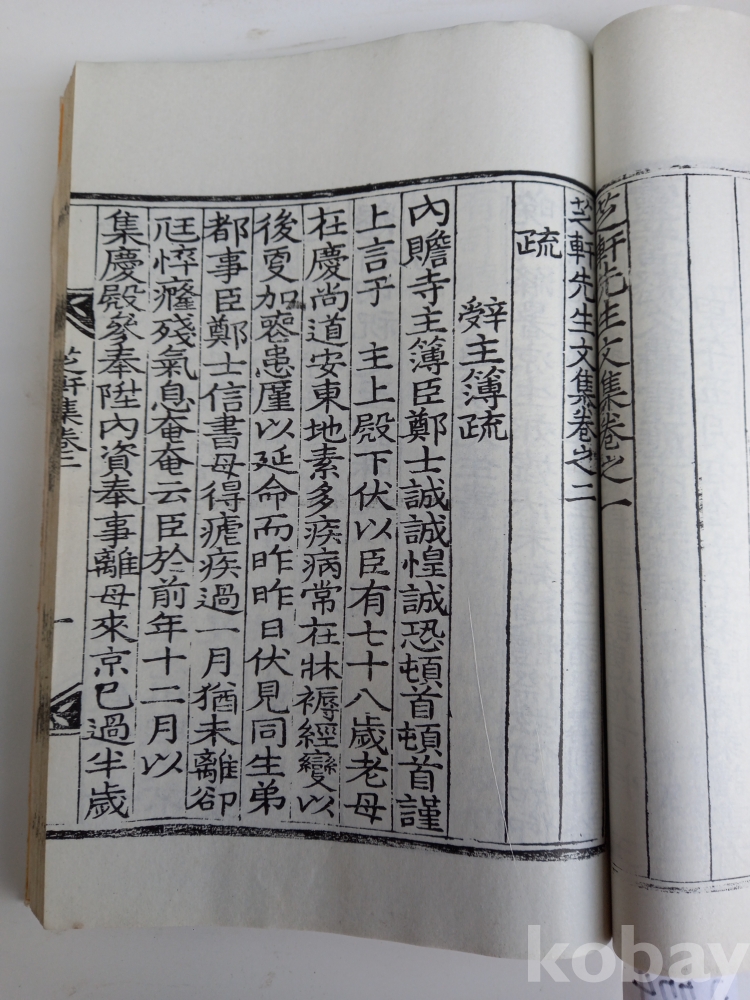 芝軒先生文集卷之一
芝軒先生文集卷之二
疏
辭主簿疏
內贍寺主簿臣鄭士誠誠惶誠恐頓首頓首謹
上言于 主上殿下伏以臣有七十八歲老母
在慶尚道安東地素多疾病常在牀褥經變以
後更加喪患厪以延命而昨昨日伏見同生弟
都事臣鄭士信書母得瘧疾過一月猶未離卻
尫悴癃殘氣息奄奄云臣於前年十二月以
集慶殿參奉陞內資奉事離母來京已過半歲
芝軒集卷二
一
kobay